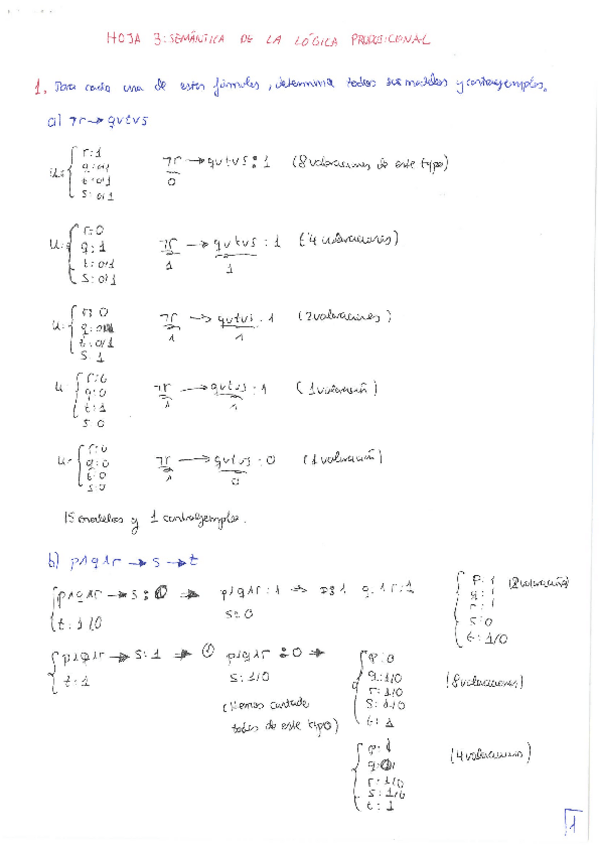 HOJA 3: SEMÁNTICA DE LA LÓGICA PROPOSICIONAL
1. Para cada una de estas fórmulas, determina todos sus modelos y contraejemplos.
a) ¬r → q∨t∨s
u: { r: 1
q: 0/1
t: 0/1
s: 0/1
¬r → q∨t∨s : 1 (8 valoraciones de este tipo)
0
u: { r: 0
q: 1
t: 0/1
s: 0/1
¬r → q∨t∨s : 1 (4 valoraciones)
1 1
u: { r: 0
q: 0
t: 0/1
s: 1
¬r → q∨t∨s : 1 (2 valoraciones)
1 1
u { r: 0
q: 0
t: 1
s: 0
¬r → q∨t∨s : 1 (1 valoración)
1 1
u: { r: 0
q: 0
t: 0
s: 0
¬r → q∨t∨s : 0 (1 valoración)
1 0
15 modelos y 1 contraejemplo.
b) p∧q∧r → s → t
{ p∧q∧r → s : 0 ⇒ p∧q∧r : 1 ⇒ p: 1 q: 1 r: 1
t: 1/0 s: 0
{ p: 1 (2 valoraciones)
q: 1
r: 1
s: 0
t: 1/0
{ p∧q∧r → s : 1 ⇒ ① p∧q∧r : 0 ⇒
t: 1 s: 1/0
(Hemos contado
todos de este tipo)
{ p: 0
q: 1/0
r: 1/0
s: 1/0
t: 1
(8 valoraciones)
{ p: 1
q: 0
r: 1/0
s: 1/0
t: 1
(4 valoraciones)
1